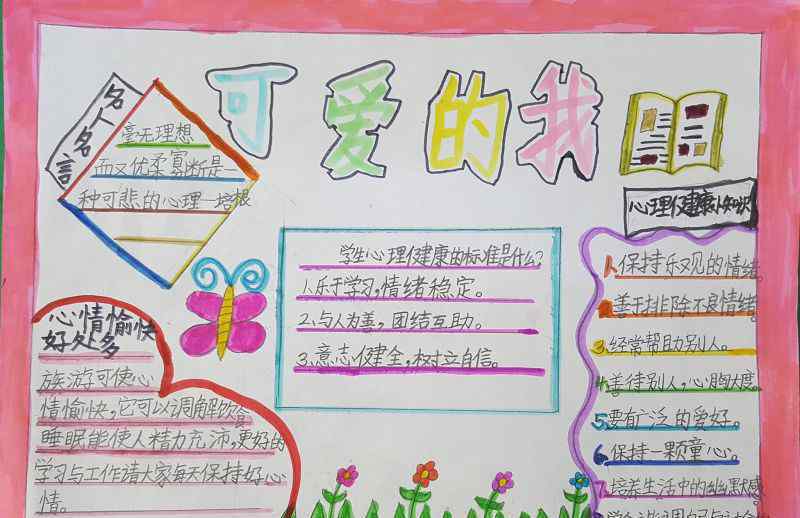 可爱的我
名人名言
毫无理想
而又优柔寡断是一
种可悲的心理—培根
学生心理健康的标准是什么?
1.乐于学习,情绪稳定。
2.与人为善,团结互助。
3.意志健全,树立自信。
心理健康小知识
1.保持乐观的情绪。
2.善于排除不良情绪
3.经常帮助别人。
4.善待别人,心胸大度。
5.要有广泛的爱好。
6.保持一颗童心。
7.培养生活中的幽默感
心情愉快
好处多
旅游可使心
情愉快,它可以调解饮食
睡眠能使人精力充沛,更好的
学习与工作请大家每天保持好心
情。